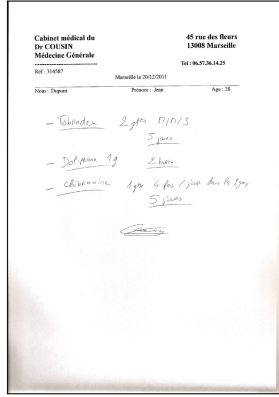 Cabinet médical du
Dr COUSIN
Médecine Générale
45 rue des fleurs
13008 Marseille
Tél : 06.57.36.14.25
Réf : 314587
Marseille le 20/12/2011
Nom : Dupont Prénom : Jean Age : 28
- Tobradex 2 gttes M/M/S
5 jours
- Doliprane 1g 2 boites
- Chibroxine 1 gtte 4 fois / jour dans les yeux
5 jours